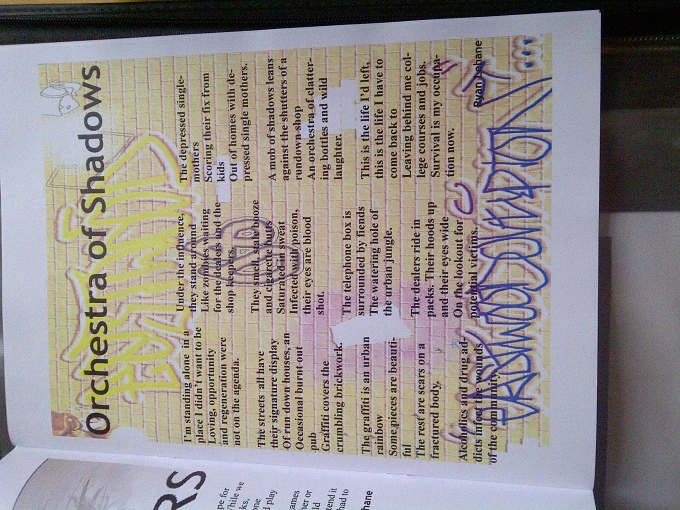 Orchestra of Shadows
I'm standing alone in a
place I didn't want to be
Loving, opportunity
and regeneration were
not on the agenda.
The streets all have
their signature display
Of run down houses, an
Occasional burnt out
pub
Graffiti covers the
crumbling brickwork.
The graffiti is an urban
rainbow
Some pieces are beauti-
ful
The rest are scars on a
fractured body.
Alcoholics and drug ad-
dicts infect the wounds
of the community.
Under the influence,
they stand around
Like zombies waiting
for the dealers and the
shop keepers.
They smell, stale booze
and cigarette butts
Saturated in sweat
Infected with poison,
their eyes are blood
shot.
The telephone box is
surrounded by fiends
The watering hole of
the urban jungle.
The dealers ride in
packs. Their hoods up
and their eyes wide
On the lookout for
potential victims.
The depressed single-
mothers
Scoring their fix from
kids
Out of homes with de-
pressed single mothers.
A mob of shadows leans
against the shutters of a
rundown shop
An orchestra of clatter-
ing bottles and wild
laughter.
This is the life I'd left,
this is the life I have to
come back to
Leaving behind me col-
lege courses and jobs.
Survival is my occupa-
tion now.
Ryan Lehane
RS